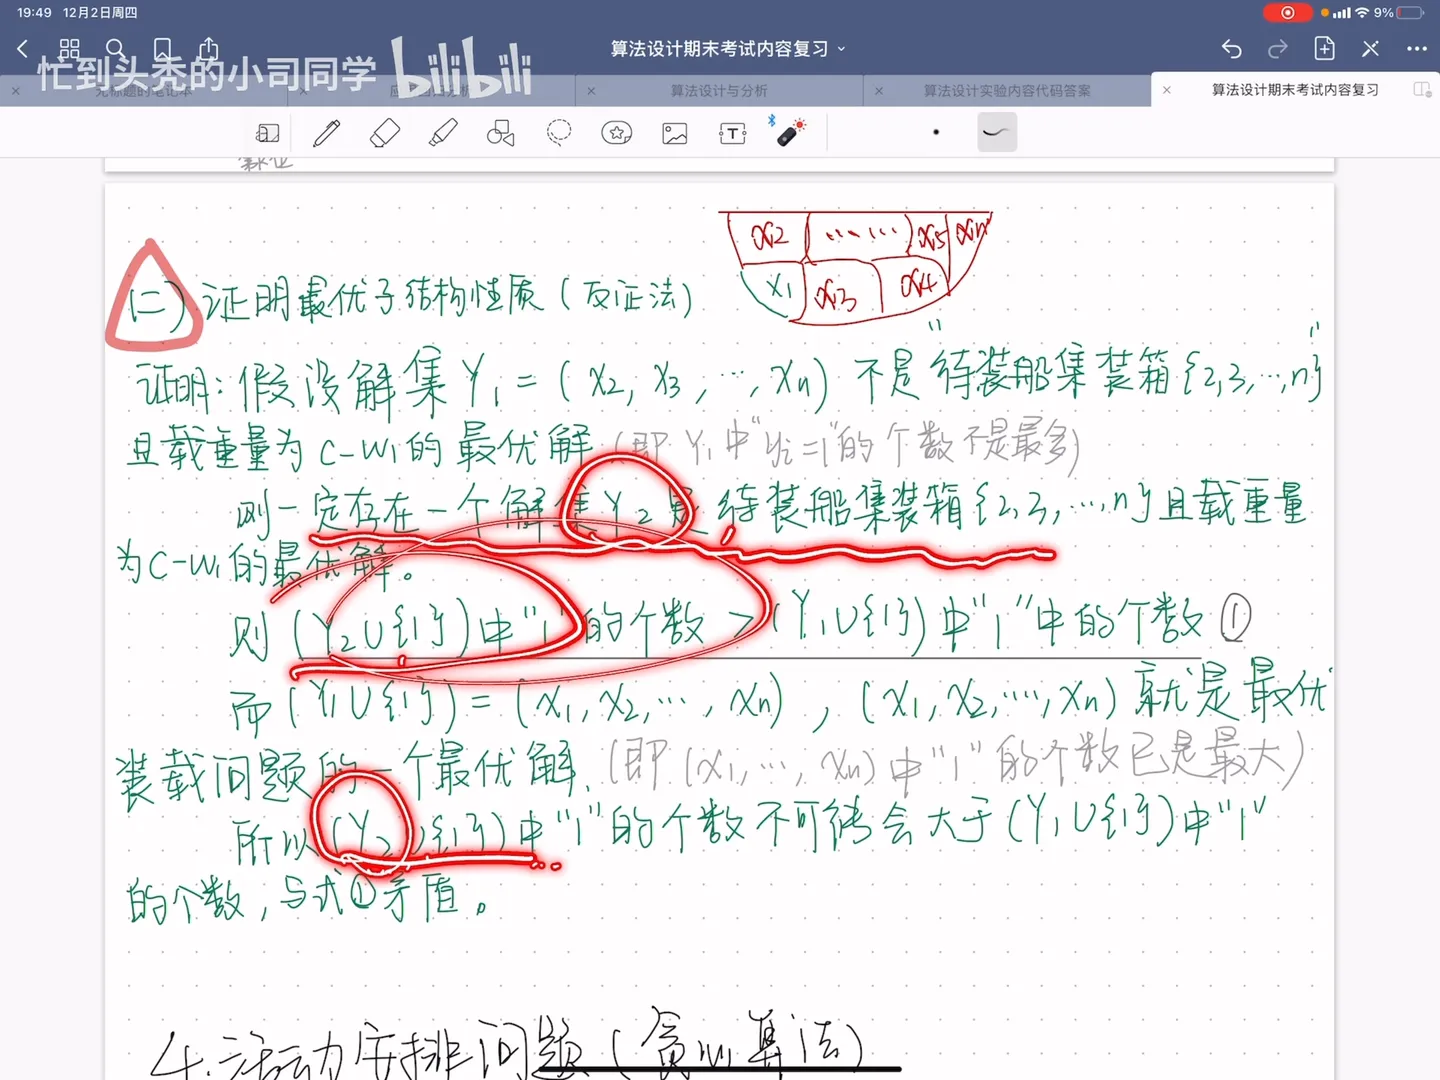 19:49 12月2日周四
9%
算法设计期末考试内容复习
忙到头秃的小司同学 bilibili
无标题的笔记本
算法设计与分析
算法设计实验内容代码答案
算法设计期末考试内容复习
x2 …… x5 xn
x1 x3 x4
(二) 证明最优子结构性质(反证法)
证明:假设解集Y1=(x2,x3,…,xn)不是"待装船集装箱{2,3,…,n}"
且载重量为C-W1的最优解(即Y1中"yi=1"的个数不是最多)
则一定存在一个解集Y2是待装船集装箱{2,3,…,n}且载重量
为C-W1的最优解。
则(Y2∪{1})中"1"的个数>(Y1∪{1})中"1"中的个数①
而(Y1∪{1})=(x1,x2,…,xn),(x1,x2,…,xn)就是最优
装载问题的一个最优解.(即(x1,…,xn)中"1"的个数已是最大)
所以(Y2∪{1})中"1"的个数不可能会大于(Y1∪{1})中"1"
的个数,与式①矛盾。
4.活动安排问题(贪心算法)